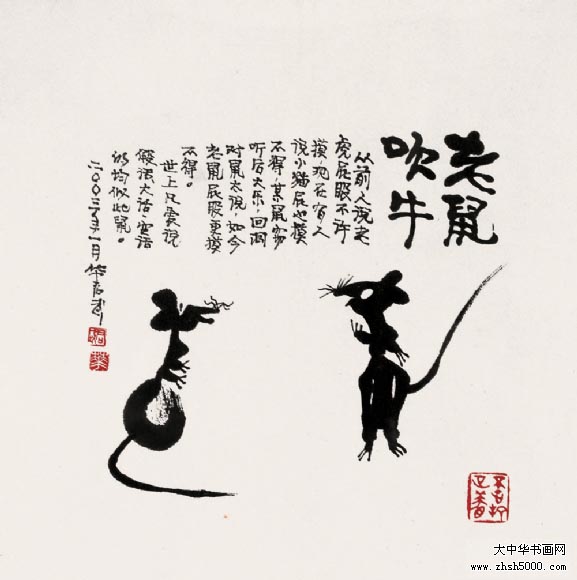 老鼠
吹牛
从前人说老
虎屁股不许
摸，现在有人
说小猫屁也摸
不得，某鼠
听后大乐，回洞
对鼠太说，如今
老鼠屁股更摸
不得。
世上凡爱说
假话、大话、空话
的均似此鼠。
二〇〇三年一月 华君武
大中华书画网
www.zhsh5000.com